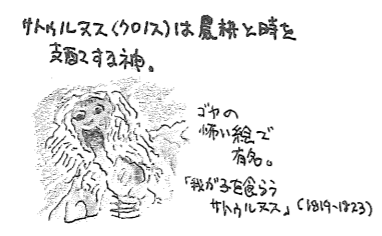 サトゥルヌス(クロノス)は農耕と時を
支配する神。
ゴヤの
怖い絵で
有名。
「我が子を食らう
サトゥルヌス」(1819~1823)